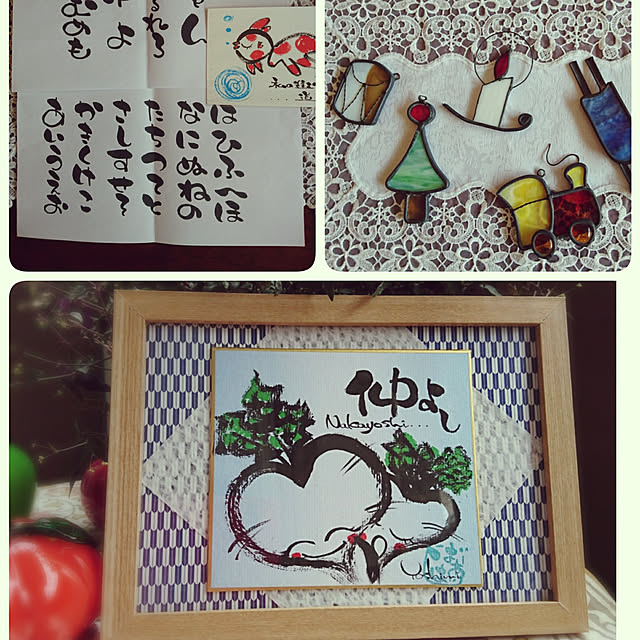 ん
るれろ
よ
めも
はひふへほ
なにぬねの
たちつてと
さしすせそ
かきくけこ
あいうえお
仲よし
Nakayoshi...